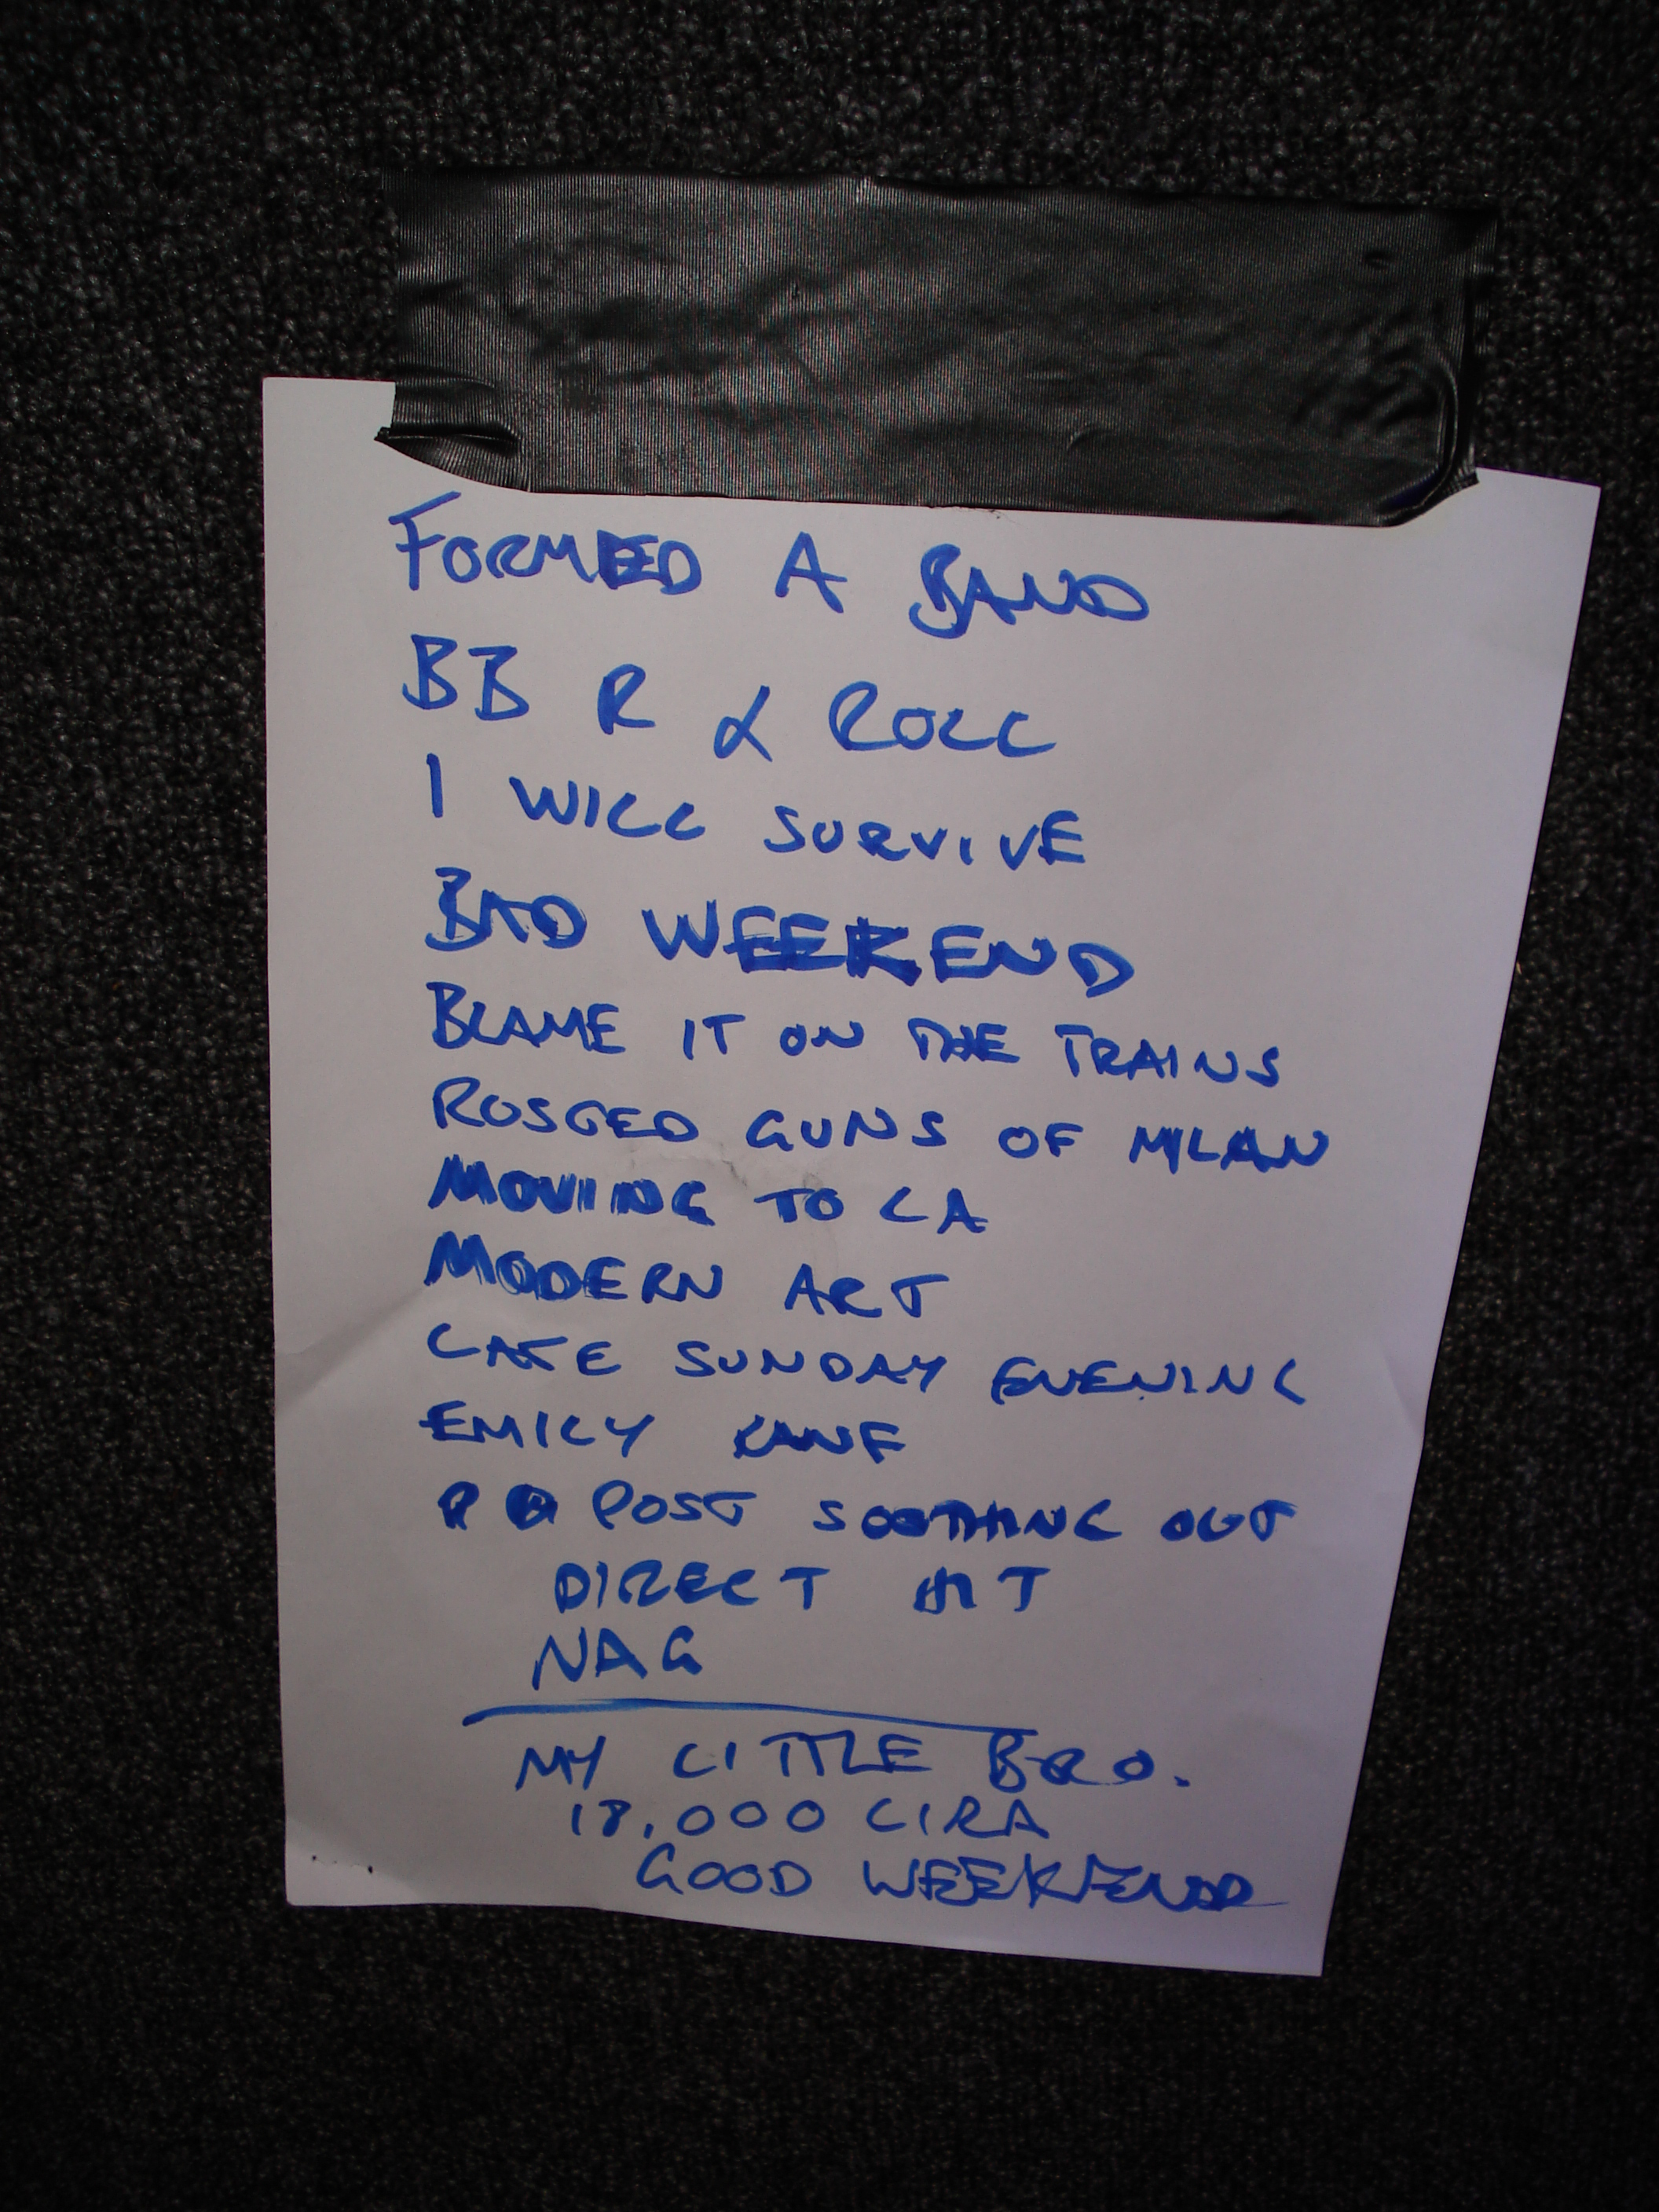 FORMED A BAND
BB R & ROLL
I WILL SURVIVE
BAD WEEKEND
BLAME IT ON THE TRAINS
ROSGED GUNS OF MILAN
MOVING TO LA
MODERN ART
LATE SUNDAY EVENING
EMILY KANE
POST SOOTHING OUT
DIRECT HIT
NAG
MY LITTLE BRO.
18,000 LIRA
GOOD WEEKEND